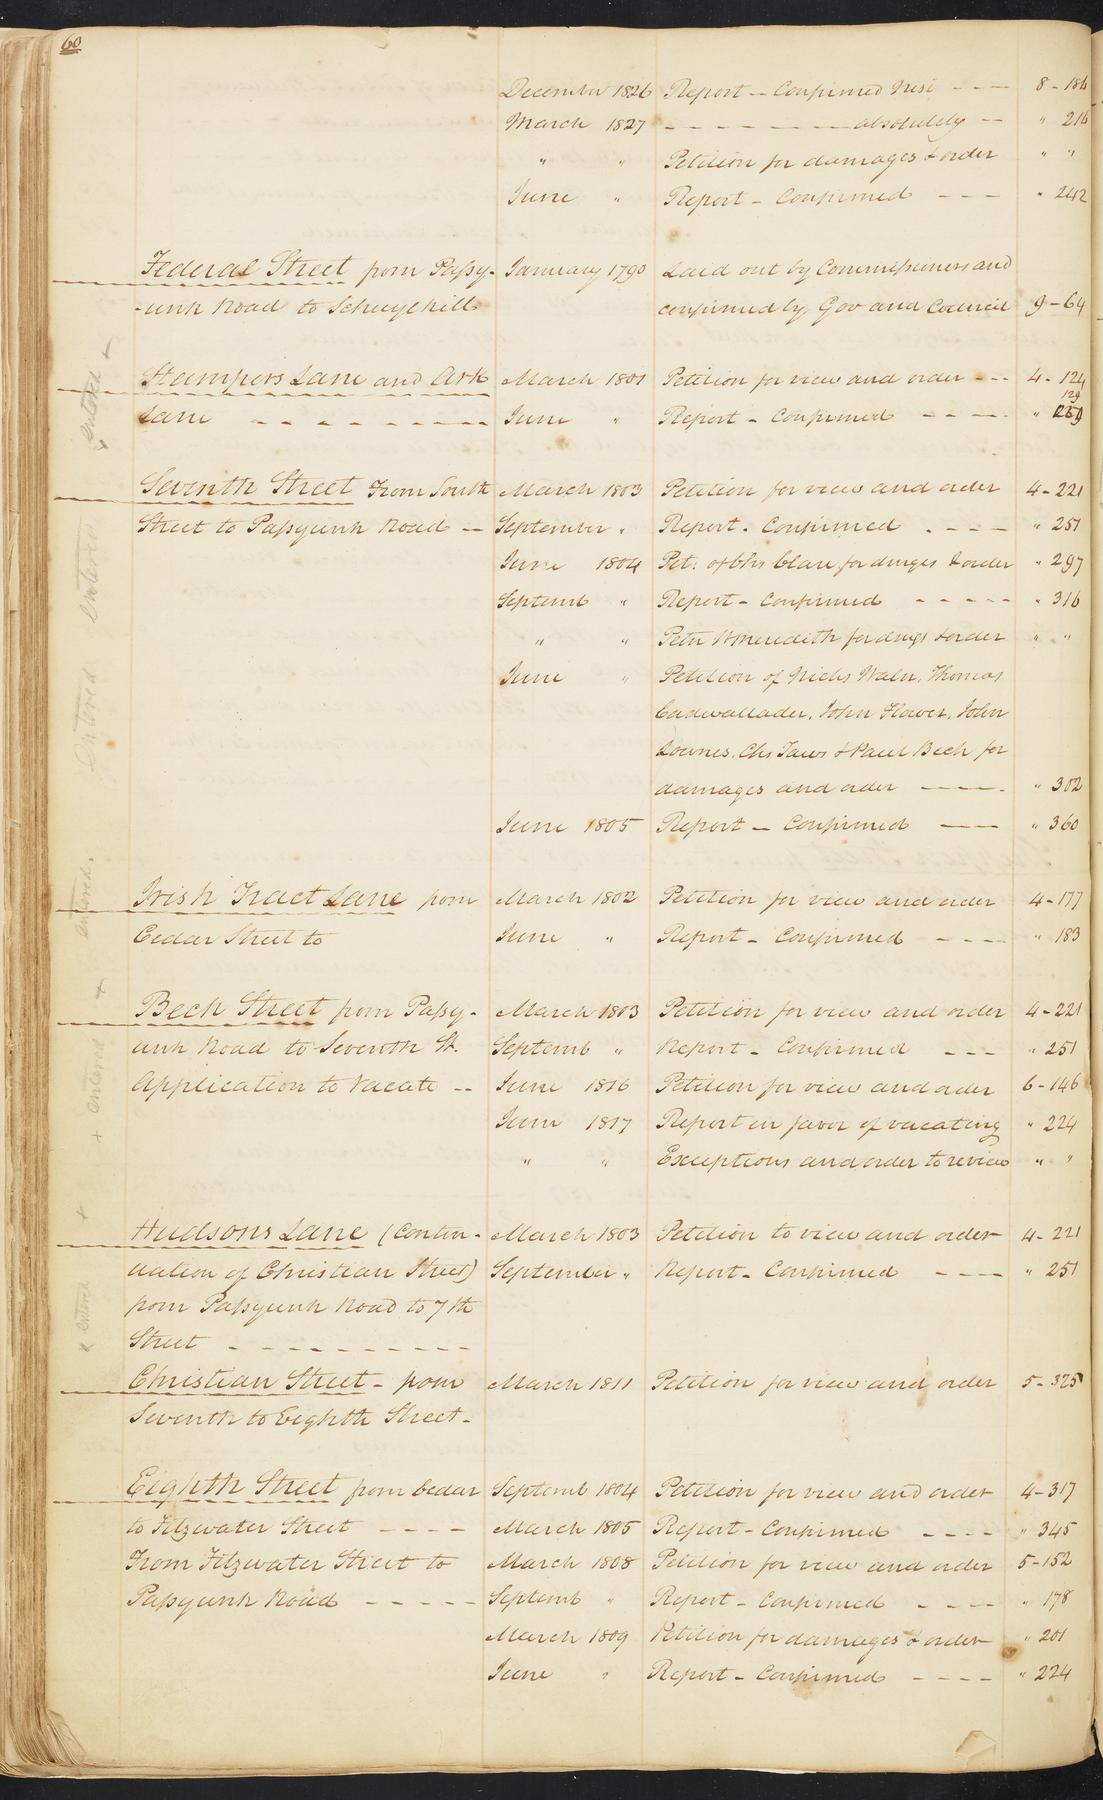 60
December 1826 Report - Confirmed Nisi - - - 8 - 186
March 1827 - - - - - - - absolutely - " 216
" " Petition for damages & order " "
June " Report - Confirmed - - - " 242
Federal Street from Passy- January 1790 Laid out by Commissioners and
-unk Road to Schuylkill confirmed by Gov and Council 9 - 64
Stampers Lane and Ark March 1801 Petition for view and order - - - 4 - 124
129
Lane - - - - - - - - June " Report - Confirmed - - - - "
Seventh Street From South March 1803 Petition for view and order 4 - 221
Street to Passyunk Road - - September " Report - Confirmed - - - - " 251
June 1804 Pet: of Chs Clare for dmges & order " 297
Septemb " Report - Confirmed - - - - - " 316
" " Petn W Meredith for dmgs & order " "
June " Petition of Nichs Waln, Thomas
Cadwallader, John Flower, John
Lownes, Chs Taws & Paul Beck for
damages and order - - - - " 302
June 1805 Report - Confirmed - - - " 360
Irish Tract Lane from March 1802 Petition for view and order 4 - 177
Cedar Street to June " Report - Confirmed - - - - " 183
Beck Street from Passy- March 1803 Petition for view and order 4 - 221
unk Road to Seventh St. Septemb " Report - Confirmed - - - " 251
Application to Vacate - - June 1816 Petition for view and order 6 - 146
June 1817 Report in favor of vacating " 224
" " Exceptions and order to review " "
Hudsons Lane (Contin- March 1803 Petition to view and order 4 - 221
uation of Christian Street) September " Report - Confirmed - - - " 251
from Passyunk Road to 7th
Street - - - - - - - - - -
Christian Street - from March 1811 Petition for view and order 5 - 325
Seventh to Eighth Street -
Eighth Street from Cedar Septemb 1804 Petition for view and order 4 - 317
to Fitzwater Street - - - - March 1805 Report - Confirmed - - - - " 345
From Fitzwater Street to March 1808 Petition for view and order 5 - 152
Passyunk Road - - - - - Septemb " Report - Confirmed - - - - " 178
March 1809 Petition for damages & order " 201
June " Report - Confirmed - - - - " 224